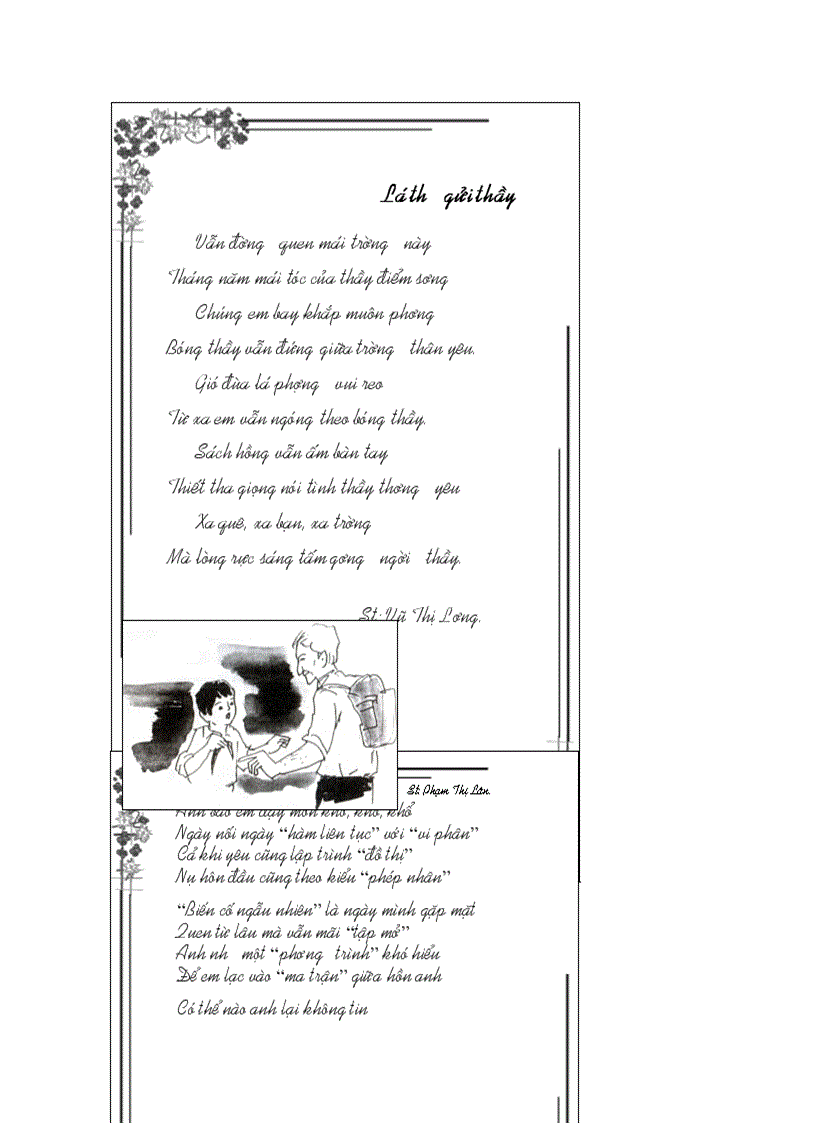 Lá th gửi thầy
Vẫn đờng quen mái trờng này
Tháng năm mái tóc của thầy điểm sơng
Chúng em bay khắp muôn phơng
Bóng thầy vẫn đứng giữa trờng thân yêu.
Gió đùa lá phợng vui reo
Từ xa em vẫn ngóng theo bóng thầy.
Sách hồng vẫn ấm bàn tay
Thiết tha giọng nói tình thầy thơng yêu
Xa quê, xa bạn, xa trờng
Mà lòng rực sáng tấm gơng ngời thầy.
St: Vũ Thị Lơng.
St: Phạm Thị Lân.
Anh bảo em dạy môn khô, khó, khổ
Ngày nối ngày “hàm liên tục” với “vi phân”
Cả khi yêu cũng lập trình “đồ thị”
Nụ hôn đầu cũng theo kiểu “phép nhân”
“Biến cố ngẫu nhiên” là ngày mình gặp mặt
Quen từ lâu mà vẫn mãi “tập mở”
Anh nh một “phơng trình” khó hiểu
Để em lạc vào “ma trận” giữa hồn anh
Có thể nào anh lại không tin